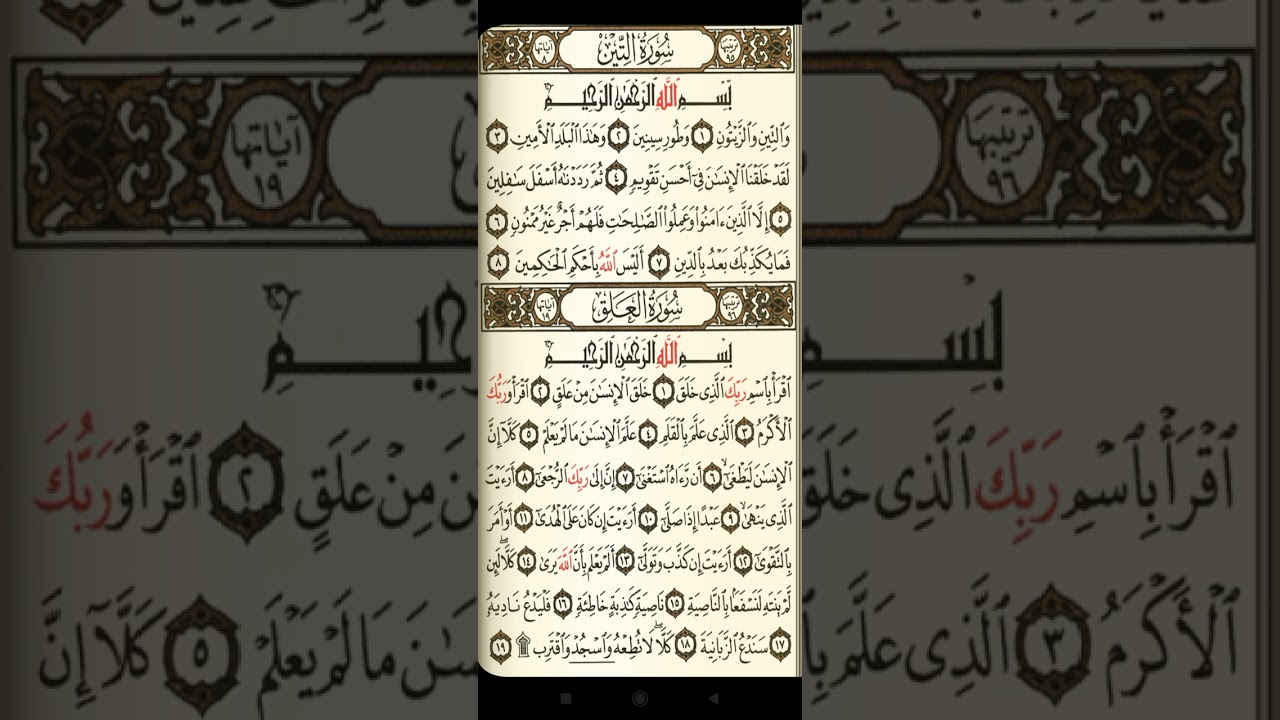 ترتيبها ٩٥ سُورَةُ التِّينِ آياتها ٨
بِّسْمِ ٱللَّهِ ٱلرَّحْمَٰنِ ٱلرَّحِيمِ
وَٱلتِّينِ وَٱلزَّيْتُونِ ١ وَطُورِ سِينِينَ ٢ وَهَٰذَا ٱلْبَلَدِ ٱلْأَمِينِ ٣
لَقَدْ خَلَقْنَا ٱلْإِنسَٰنَ فِىٓ أَحْسَنِ تَقْوِيمٍ ٤ ثُمَّ رَدَدْنَٰهُ أَسْفَلَ سَٰفِلِينَ
٥ إِلَّا ٱلَّذِينَ ءَامَنُوا۟ وَعَمِلُوا۟ ٱلصَّٰلِحَٰتِ فَلَهُمْ أَجْرٌ غَيْرُ مَمْنُونٍ ٦
فَمَا يُكَذِّبُكَ بَعْدُ بِٱلدِّينِ ٧ أَلَيْسَ ٱللَّهُ بِأَحْكَمِ ٱلْحَٰكِمِينَ ٨
ترتيبها ٩٦ سُورَةُ العَلَقِ آياتها ١٩
بِسْمِ ٱللَّهِ ٱلرَّحْمَٰنِ ٱلرَّحِيمِ
ٱقْرَأْ بِٱسْمِ رَبِّكَ ٱلَّذِى خَلَقَ ١ خَلَقَ ٱلْإِنسَٰنَ مِنْ عَلَقٍ ٢ ٱقْرَأْ وَرَبُّكَ
ٱلْأَكْرَمُ ٣ ٱلَّذِى عَلَّمَ بِٱلْقَلَمِ ٤ عَلَّمَ ٱلْإِنسَٰنَ مَا لَمْ يَعْلَمْ ٥ كَلَّآ إِنَّ
ٱلْإِنسَٰنَ لَيَطْغَىٰٓ ٦ أَن رَّءَاهُ ٱسْتَغْنَىٰٓ ٧ إِنَّ إِلَىٰ رَبِّكَ ٱلرُّجْعَىٰٓ ٨ أَرَءَيْتَ
ٱلَّذِى يَنْهَىٰ ٩ عَبْدًا إِذَا صَلَّىٰٓ ١٠ أَرَءَيْتَ إِن كَانَ عَلَى ٱلْهُدَىٰٓ ١١ أَوْ أَمَرَ
بِٱلتَّقْوَىٰٓ ١٢ أَرَءَيْتَ إِن كَذَّبَ وَتَوَلَّىٰٓ ١٣ أَلَمْ يَعْلَم بِأَنَّ ٱللَّهَ يَرَىٰ ١٤ كَلَّا لَئِن
لَّمْ يَنتَهِ لَنَسْفَعًۢا بِٱلنَّاصِيَةِ ١٥ نَاصِيَةٍ كَٰذِبَةٍ خَاطِئَةٍ ١٦ فَلْيَدْعُ نَادِيَهُۥ
١٧ سَنَدْعُ ٱلزَّبَانِيَةَ ١٨ كَلَّا لَا تُطِعْهُ وَٱسْجُدْ وَٱقْتَرِب ۩ ١٩